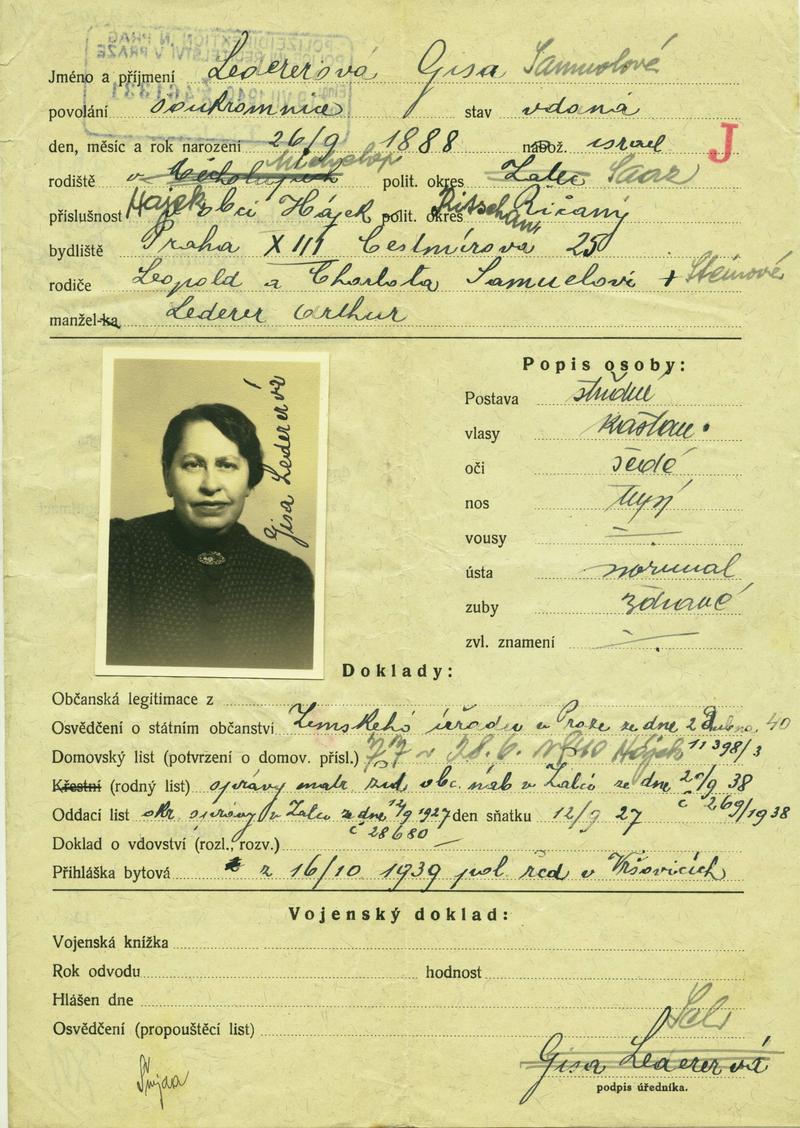 Jméno a příjmení Ledererová Gisa Samuelová
povolání soukromnice stav vdaná
den, měsíc a rok narození 26/9 1888 nábož. israel J
rodiště v polit. okres Žatec Saaz
příslušnost Hajek obci Hájek polit. okres Ritschan Říčany
bydliště Praha XIII Čestmírova 25
rodiče Leopold a Charlota Samuelovi + Steinové
manžel-ka Lederer Arthur
Gisa Ledererová
Popis osoby:
Postava střední
vlasy kaštan.
oči šedé
nos
vousy —
ústa normal
zuby zdravé
zvl. znamení —
Doklady:
Občanská legitimace z
Osvědčení o státním občanství Zemského úřadu v Praze ze dne 2 dubna 40
Domovský list (potvrzení o domov. přísl.) 11398/3
Křestní (rodný list) správy matr žid obc. náb v Žatci ze dne 20/9 38
č 269/1938
Oddací list okr správy v Žatci ze dne 12/9 1927 den sňatku 12/9 27
č 28680
Doklad o vdovství (rozl., rozv.) —
Přihláška bytová z 16/10 1939 pol řed v Vršovicích
Vojenský doklad:
Vojenská knížka
Rok odvodu hodnost
Hlášen dne
Osvědčení (propouštěcí list)
Gisa Ledererová
podpis úředníka.